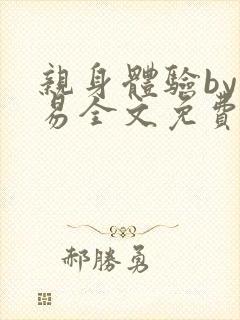 親身體驗by
易全文免費
郝勝勇